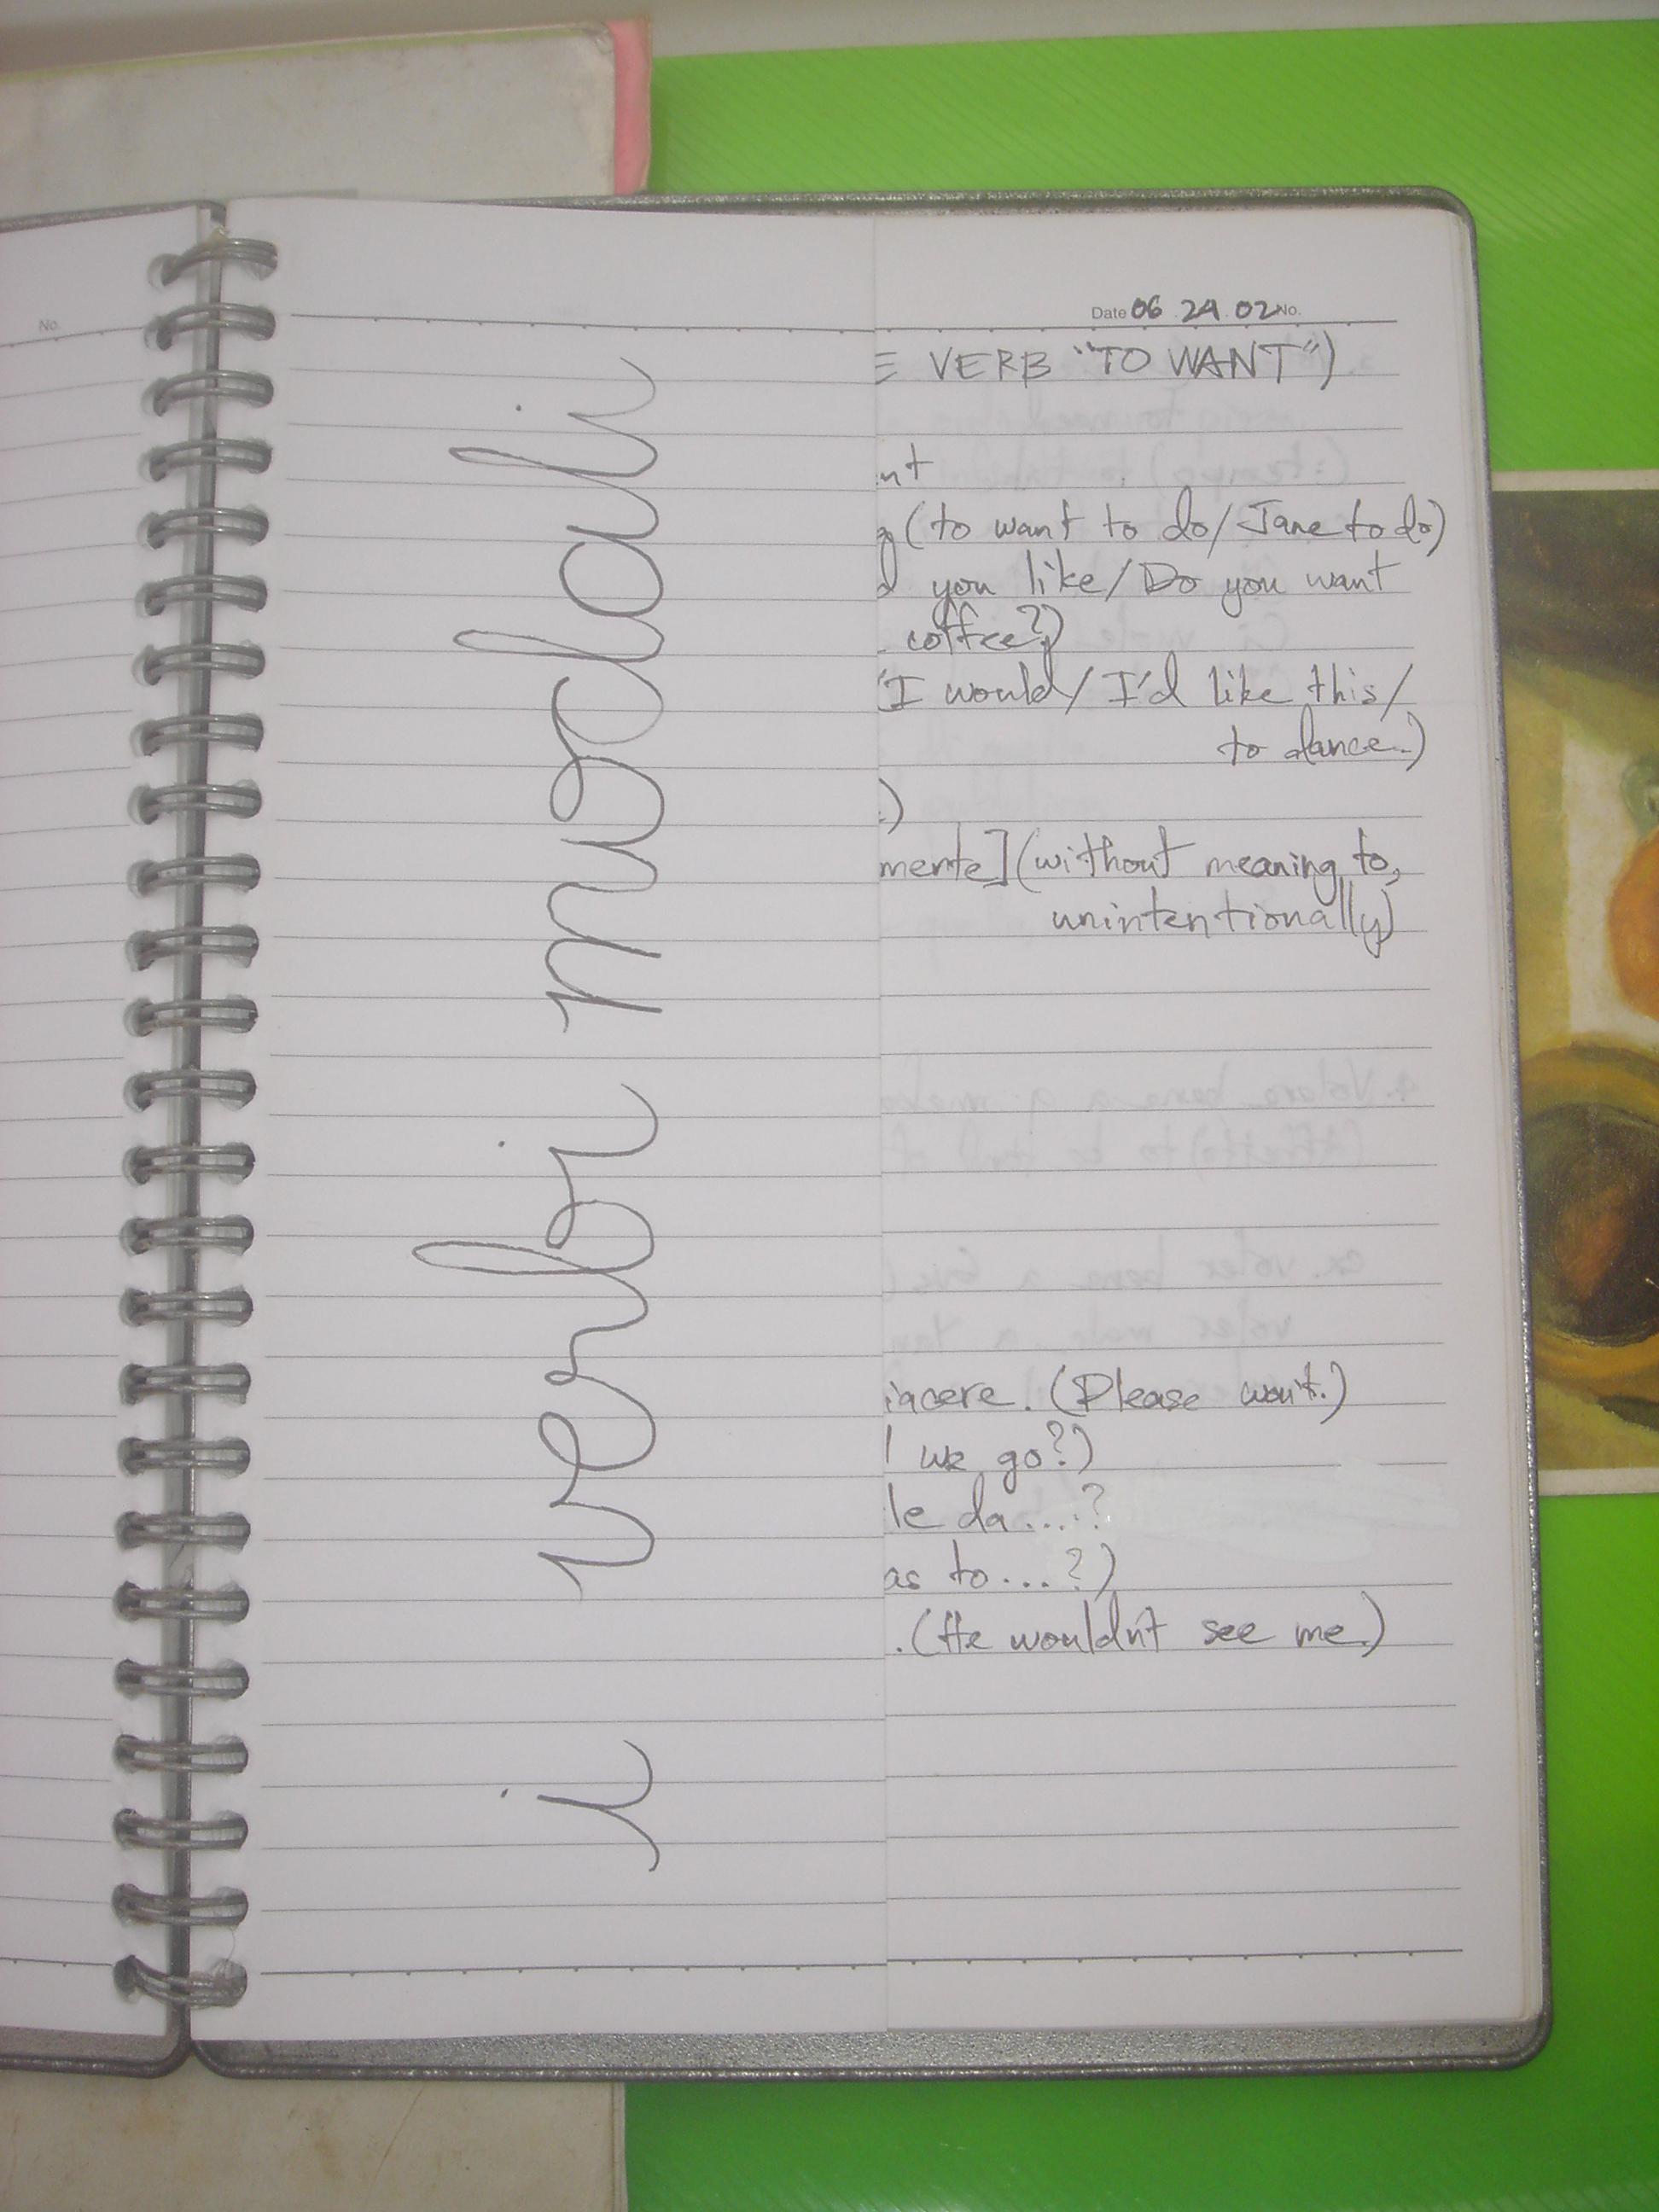 i verbi modali
No.
Date 06 24 02 No.
VERB "TO WANT")
nt
(to want to do/Jane to do)
you like/Do you want
coffee?)
"I would/I'd like this/
to dance.)
)
mente](without meaning to,
unintentionally)
iacere. (Please wait.)
we go?)
le da....?
as to...?)
.(He wouldn't see me.)